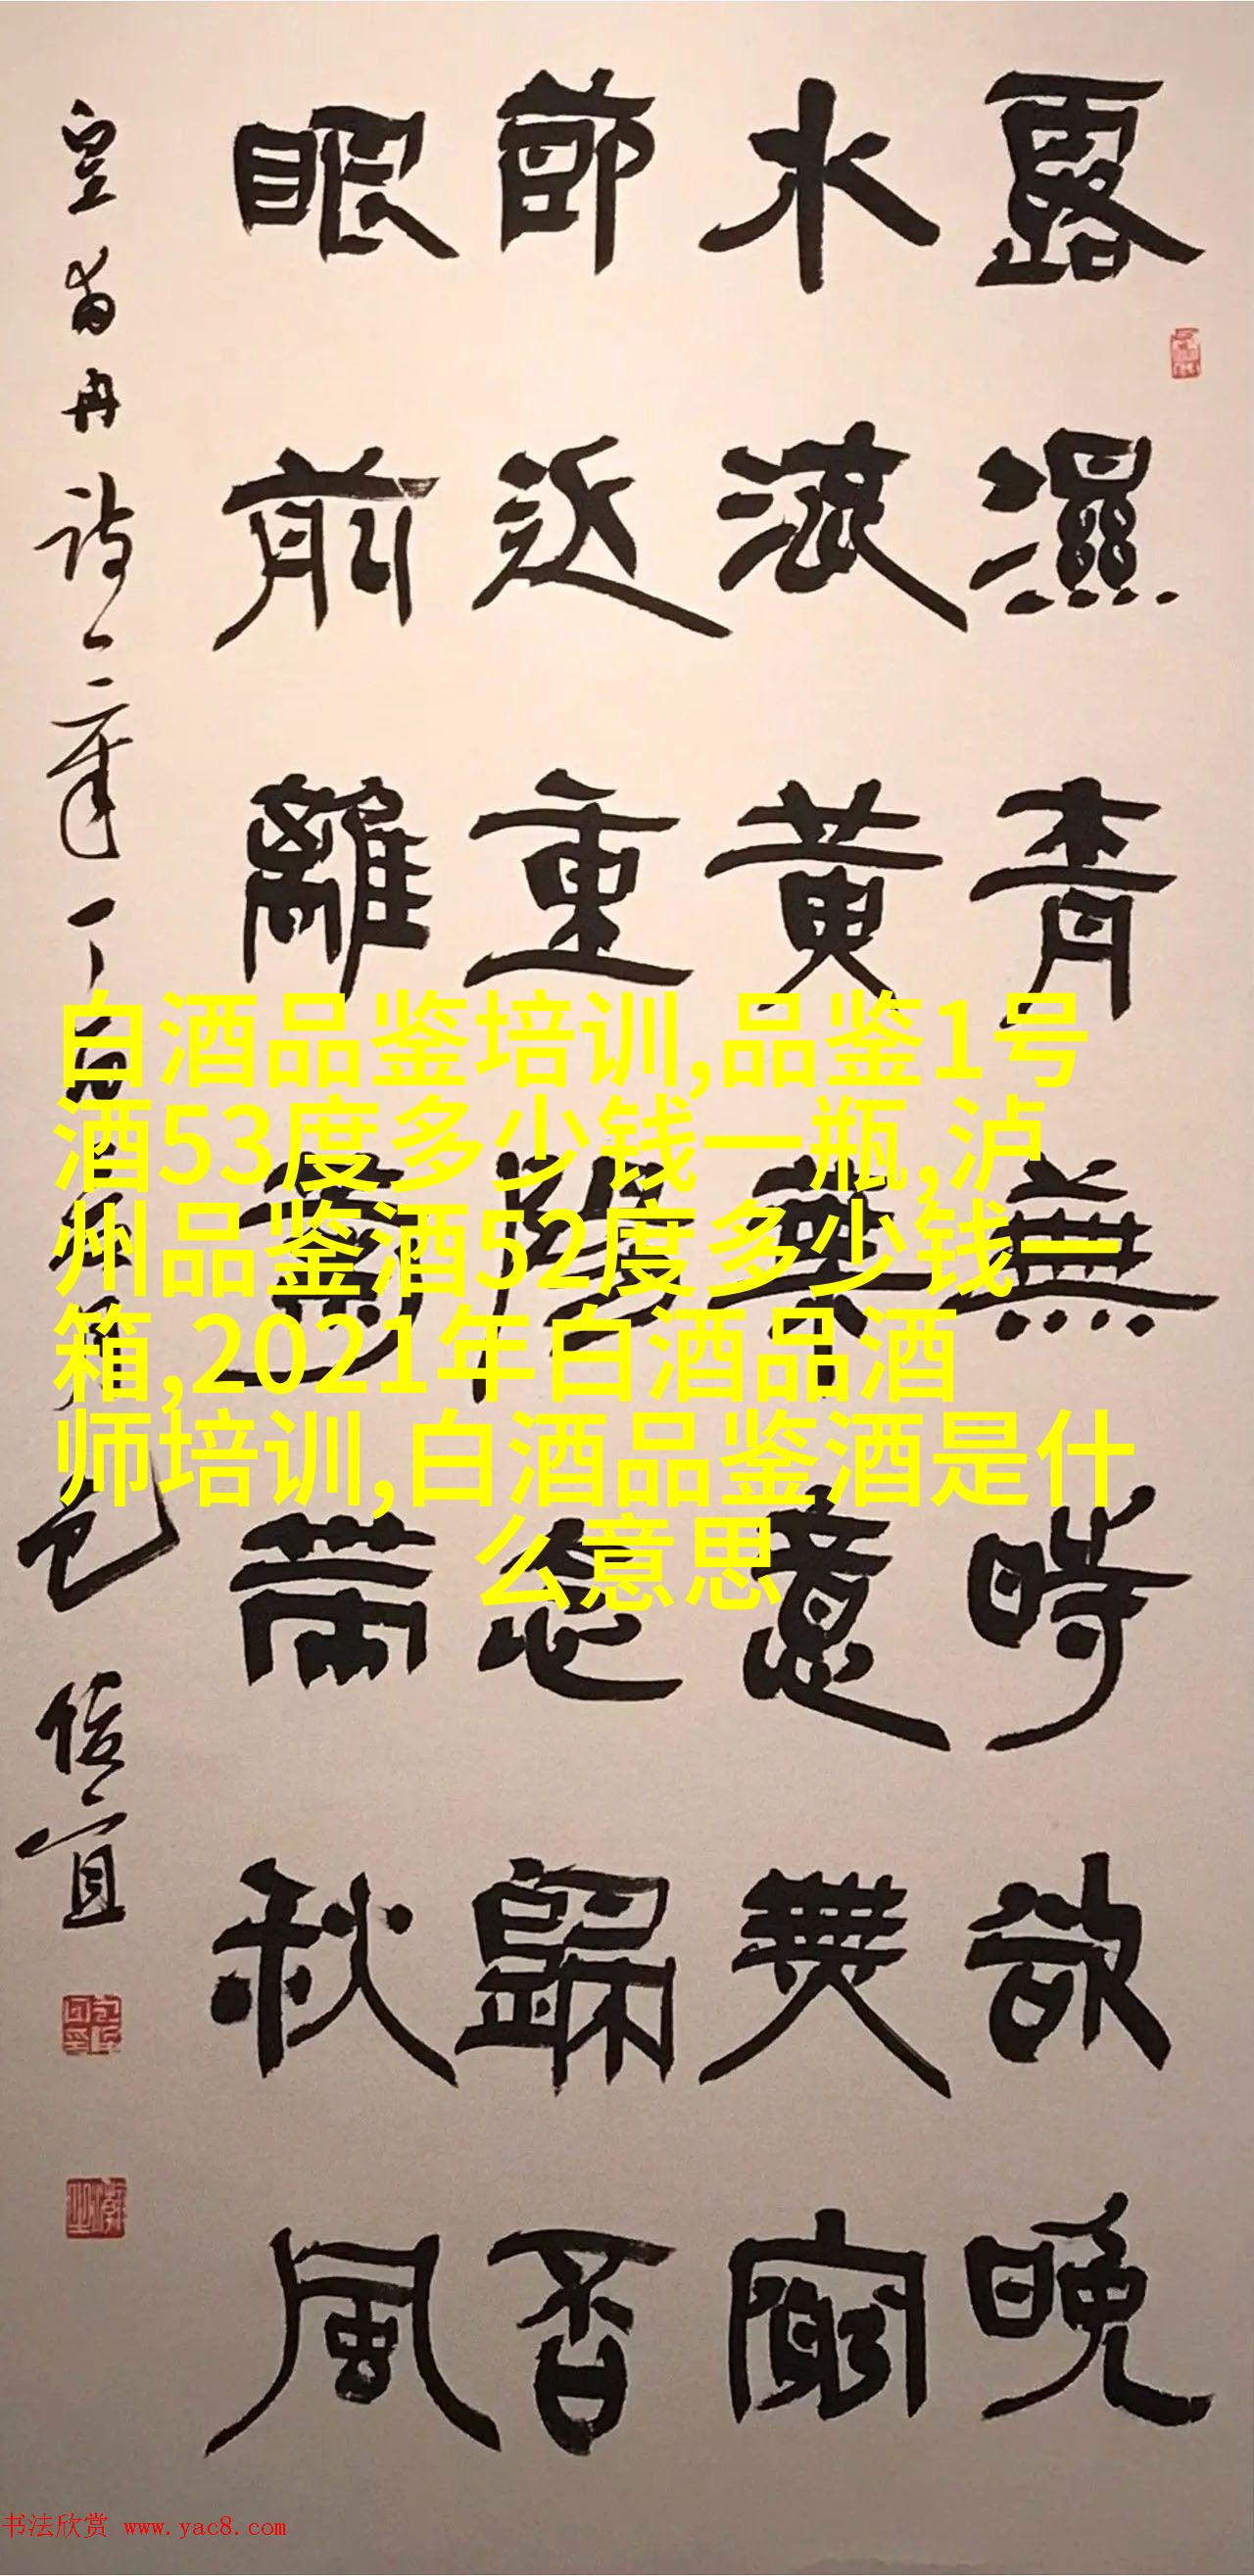 露濕青蕪時欲晚
水流黃葉意無窮
節近重陽念歸否
眼前籬菊帶秋風
皇甫冉詩一章丁酉
白酒品鉴培训,品鉴1号
酒53度多少钱一瓶,泸
州品鉴酒52度多少钱一
箱,2021年白酒品酒
师培训,白酒品鉴酒是什
么意思
书法欣赏 www.yac8.com